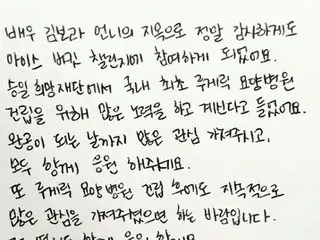 배우 김보라 언니의 지목으로 정말 감사하게도
아이스 버킷 챌린지에 참여하게 되었어요.
승일희망재단에서 국내 최초 루게릭 요양병원
건립을 위해 많은 노력을 하고 계신다고 들었어요.
완공이 되는 날까지 많은 관심 가져주시고,
모두 함께 응원 해주세요.
또 루게릭 요양병원 건립 후에도 지속적으로
많은 관심을 가져주셨으면 하는 바람입니다.